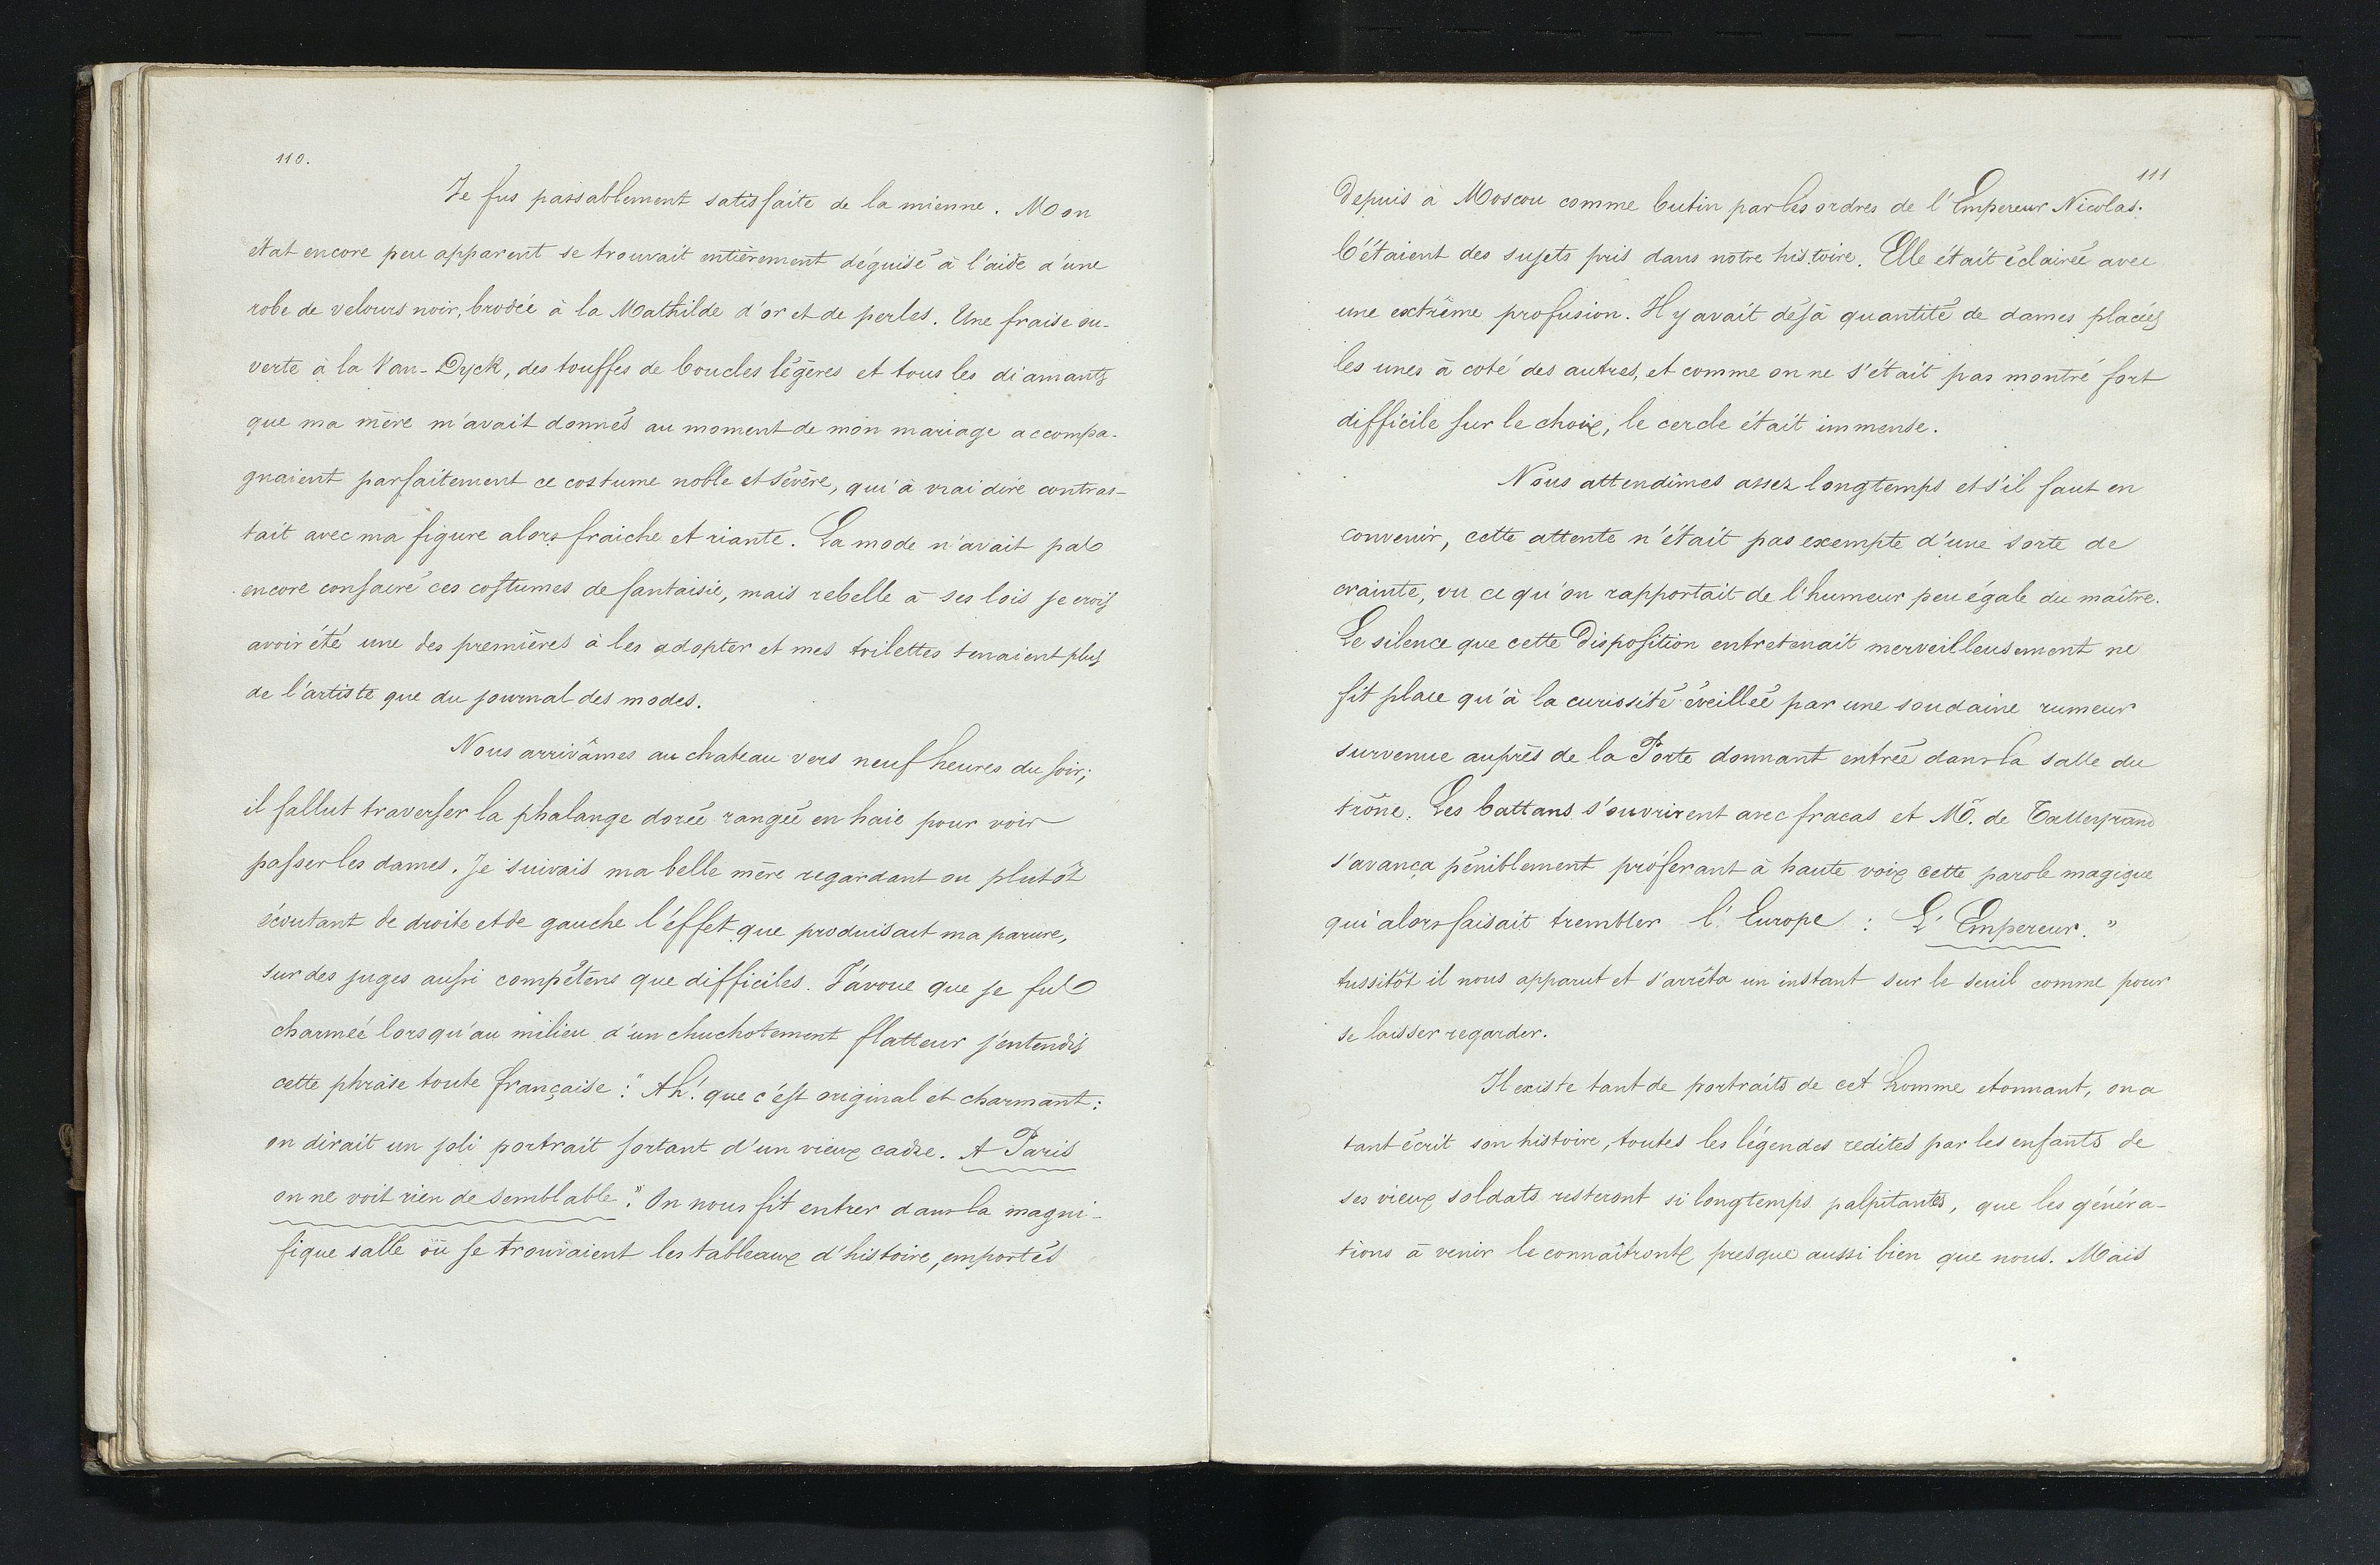 110.
Je fus passablement satisfaite de la mienne. Mon
état encore peu apparent se trouvait entièrement déguisé à l'aide d'une
robe de velours noir, brodée à la Mathilde d'or et de perles. Une fraise ou-
verte à la Van-Dyck, des touffes de boucles légères et tous les diamants
que ma mère m'avait donnés au moment de mon mariage accompa-
gnaient parfaitement ce costume noble et sévère, qui à vrai dire contras-
tait avec ma figure alors fraiche et riante. La mode n'avait pas
encore consacré ces costumes de fantaisie, mais rebelle à ses lois je crois
avoir été une des premières à les adopter et mes toilettes tenaient plus
de l'artiste que du journal des modes.
Nous arrivâmes au chateau vers neuf heures du soir;
il fallut traverser la phalange dorée rangée en haie pour voir
passer les dames. Je suivais ma belle mère regardant ou plutôt
écoutant de droite et de gauche l'éffet que produisait ma parure,
sur des juges aussi compétens que difficiles. J'avoue que je fus
charmée lorsqu'au milieu d'un chuchotement flatteur j'entendis
cette phrase toute française: "Ah! que c'est original et charmant:
on dirait un joli portrait sortant d'un vieux cadre. A Paris
on ne voit rien de semblable." On nous fit entrer dans la magni-
fique salle où se trouvaient les tableaux d'histoire, emportés
111
depuis à Moscou comme butin par les ordres de l'Empereur Nicolas.
C'étaient des sujets pris dans notre histoire. Elle était éclairée avec
une extrême profusion. Il y avait déjà quantité de dames placées
les unes à coté des autres, et comme on ne s'était pas montré fort
difficile sur le choix, le cercle était immense.
Nous attendîmes assez longtemps et s'il faut en
convenir, cette attente n'était pas exempte d'une sorte de
crainte, vu ce qu'on rapportait de l'humeur peu égale du maître.
Le silence que cette disposition entretenait merveilleusement ne
fit place qu'à la curiosité éveillée par une soudaine rumeur
survenue auprès de la Porte donnant entrée dans la salle du
trône. Les battans s'ouvrirent avec fracas et M. de Talleyrand
s'avança péniblement proférant à haute voix cette parole magique
qui alors faisait trembler l'Europe : L'Empereur."
Aussitôt il nous apparut et s'arrêta un instant sur le seuil comme pour
se laisser regarder.
Il existe tant de portraits de cet homme etonnant, on a
tant écrit son histoire, toutes les légendes redites par les enfants de
ses vieux soldats resteront si longtemps palpitantes, que les généra-
tions à venir le connaîtront presque aussi bien que nous. Mais